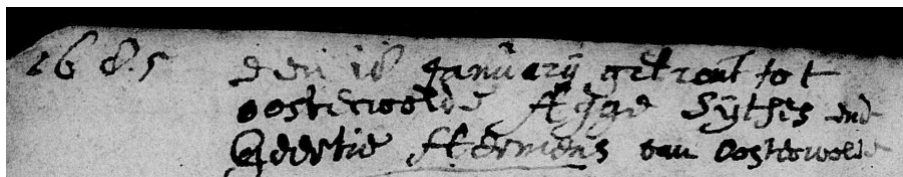 1685 den 18 Januarij getrout tot
oosterwolde Sijthes end
Geertie Hermens van Oosterwolde